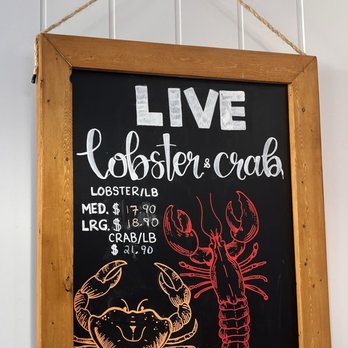 LIVE
lobster & crab
LOBSTER/LB
MED. $ 17.90
LRG. $ 18.90
CRAB/LB
$ 21.90